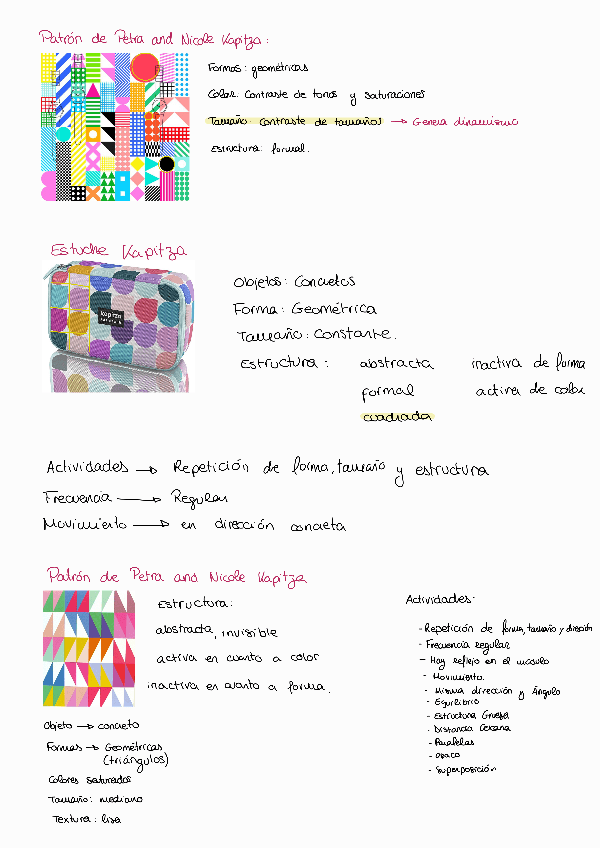 Patrón de Petra and Nicole Kapitza:
Formas: geométricas
Color: Contraste de tonos y saturaciones
Tamaño: Contraste de tamaños → Genera dinamismo
Estructura: formal.
Estuche Kapitza
kapitza
Objetos: Concretos
Forma: Geométrica
Tamaño: Constante.
Estructura: abstracta inactiva de forma
formal activa de color
cuadrada
Actividades → Repetición de forma, tamaño y estructura
Frecuencia → Regular
Movimiento → en dirección concreta
Patrón de Petra and Nicole Kapitza
Estructura:
abstracta, invisible
activa en cuanto a color
inactiva en cuanto a forma.
Objeto → concreto
Formas → Geométricas
(triángulos)
Colores saturados
Tamaño: mediano
Textura: lisa
Actividades:
- Repetición de forma, tamaño y dirección
- Frecuencia regular
- Hay reflejo en el módulo
- Movimiento.
- Misma dirección y ángulo
- Equilibrio
- Estructura Gruesa
- Distancia Cercana
- Paralelas
- opaco
- Superposición